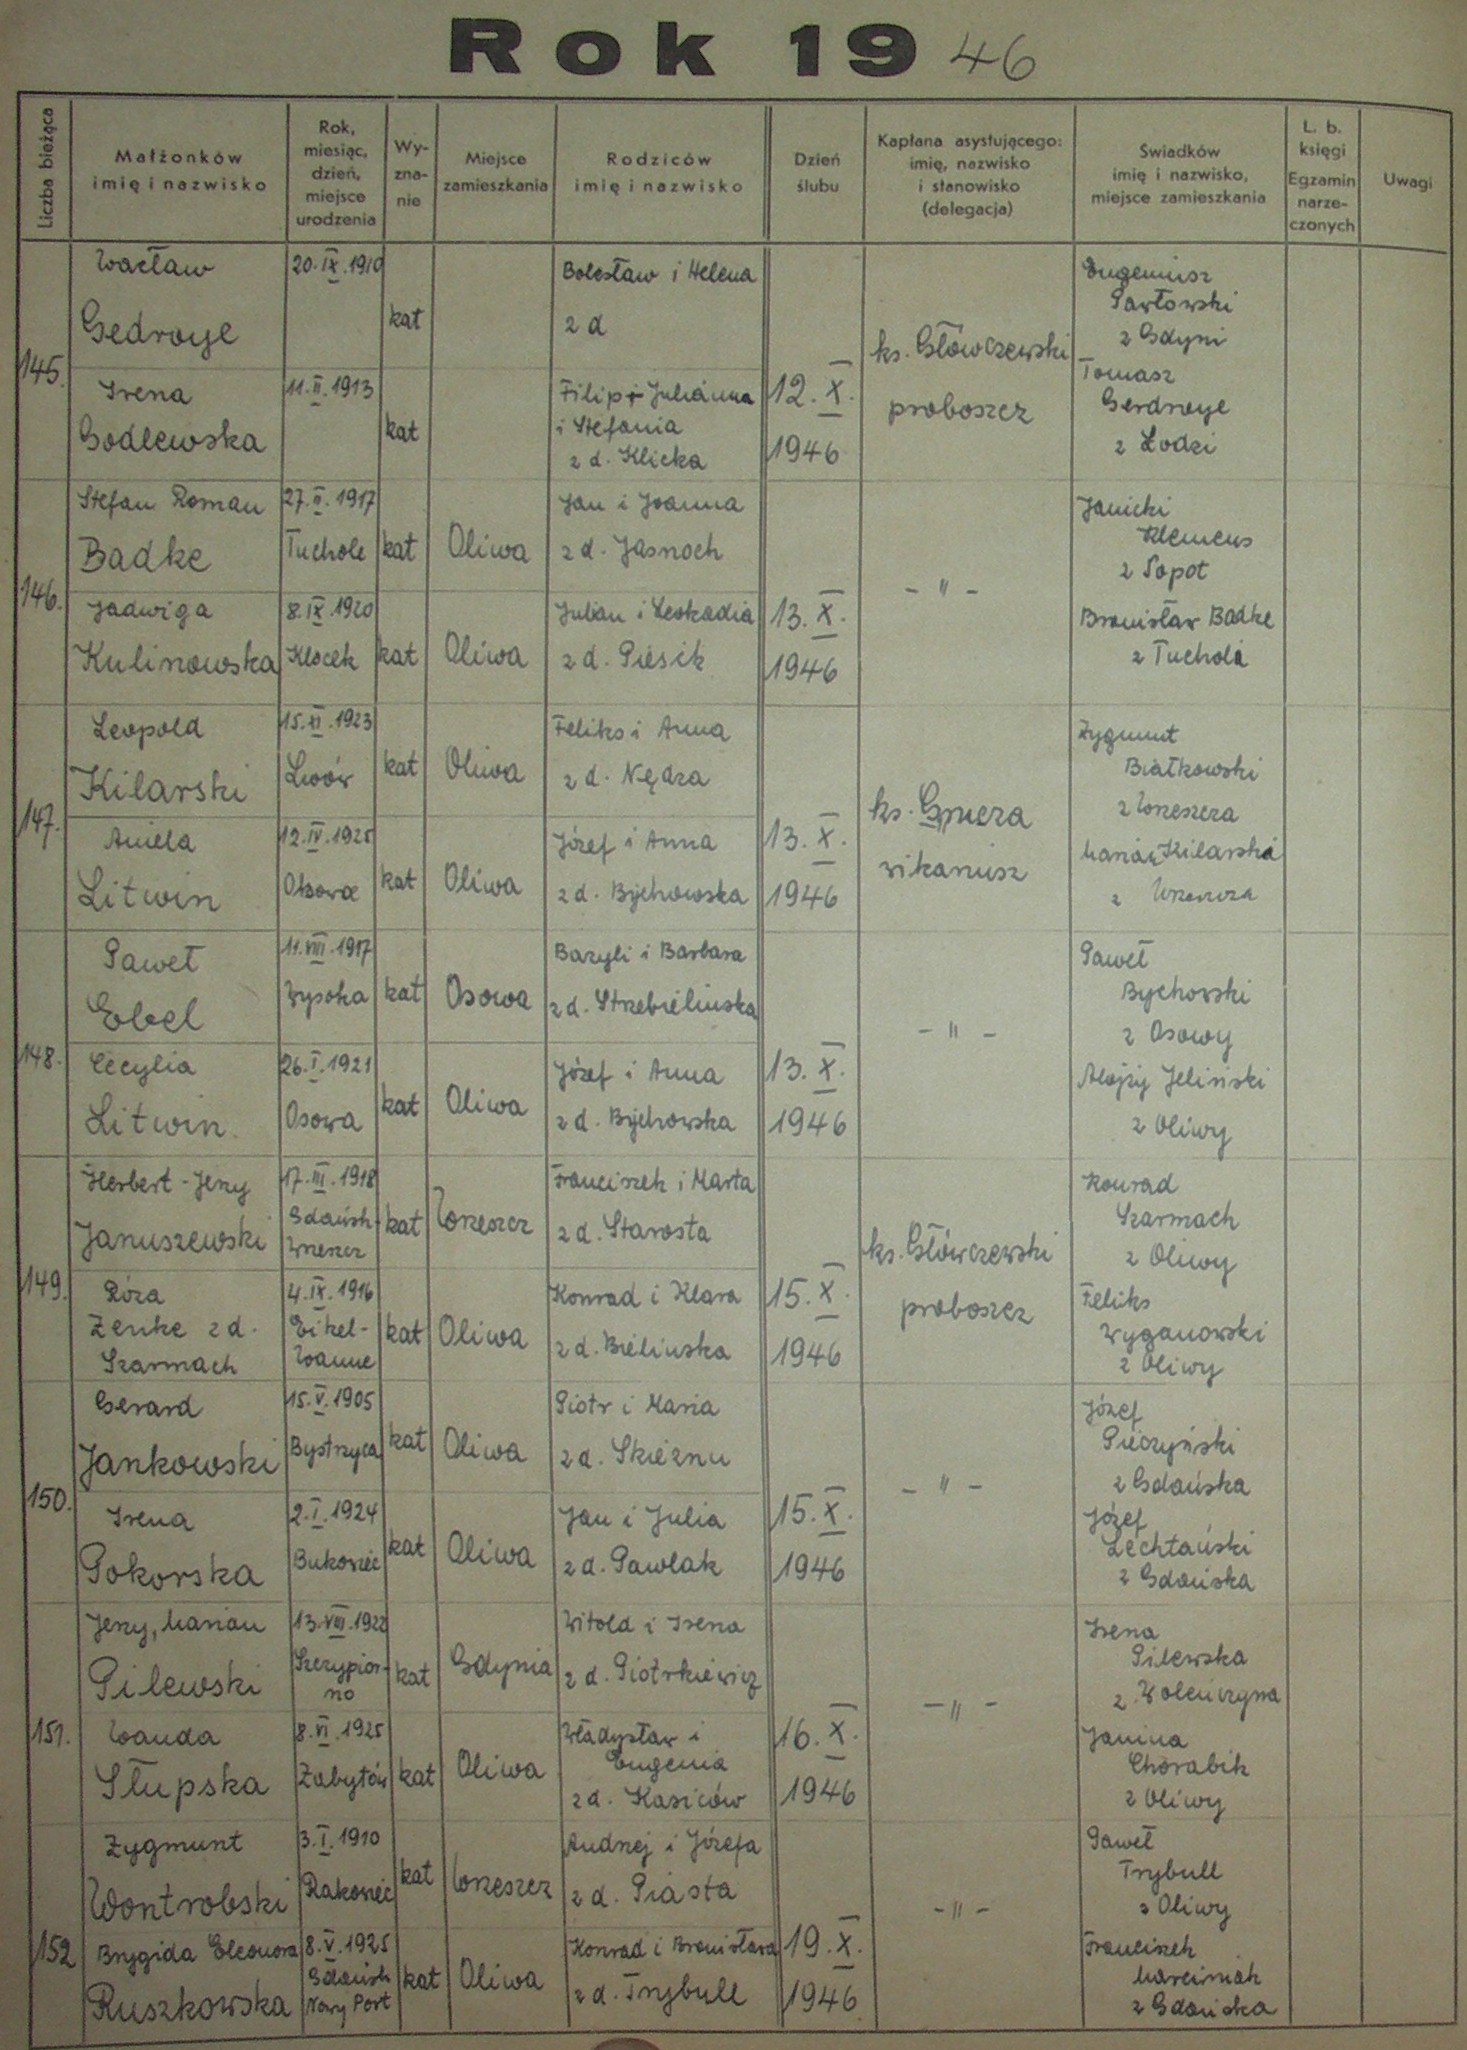 Rok 1946
Liczba bieżąca
Małżonków
imię i nazwisko
Rok,
miesiąc,
dzień,
miejsce
urodzenia
Wy-
zna-
nie
Miejsce
zamieszkania
Rodziców
imię i nazwisko
Dzień
ślubu
Kapłana asystującego:
imię, nazwisko
i stanowisko
(delegacja)
Świadków
imię i nazwisko,
miejsce zamieszkania
L. b.
księgi
Egzamin
narze-
czonych
Uwagi
145.
Wacław
Gedroye
20.IX.1910
kat
Bolesław i Helena
z d
Irena
Godlewska
11.II.1913
kat
Filip i Julianna
i Stefania
z d. Klicka
12.X.
1946
ks. Główczewski
proboszcz
Eugeniusz
Pawłowski
z Gdyni
Tomasz
Gerdroye
z Łodzi
146.
Stefan Roman
Badke
27.II.1917
Tuchole
kat
Oliwa
Jan i Joanna
z d. Jasnoch
Jadwiga
Kulinowska
8.IX.1920
Klocek
kat
Oliwa
Julian i Leokadia
z d. Piesik
13.X.
1946
- " -
Janicki
Klemens
z Sopot
Bronisław Badke
z Tuchola
147.
Leopold
Kilarski
15.XI.1923
Lwów
kat
Oliwa
Feliks i Anna
z d. Nędza
Aniela
Litwin
12.IV.1925
Osowa
kat
Oliwa
Józef i Anna
z d. Bychowska
13.X.
1946
ks. Gnieza
wikariusz
Zygmunt
Białkowski
z Wrzeszcza
Maria Kilarska
z Wrzeszcza
148.
Paweł
Ebel
11.VIII.1917
Wysoka
kat
Osowa
Bazyli i Barbara
z d. Strzebielinska
Cecylia
Litwin
26.I.1921
Osowa
kat
Oliwa
Józef i Anna
z d. Bychowska
13.X.
1946
- " -
Paweł
Bychowski
z Osowy
Alojzy Jeliński
z Oliwy
149.
Herbert - Jerzy
Januszewski
17.III.1918
Gdańsk-
Wrzeszcz
kat
Wrzeszcz
Franciszek i Marta
z d. Starosta
Róża
Zenke z d.
Szarmach
4.IX.1916
Eikel-
Wanne
kat
Oliwa
Konrad i Klara
z d. Bielinska
15.X.
1946
ks. Główczewski
proboszcz
Konrad
Szarmach
z Oliwy
Feliks
Wyganowski
z Oliwy
150.
Gerard
Jankowski
15.V.1905
Bystrzyca
kat
Oliwa
Piotr i Maria
z d. Skieznu
Irena
Pokorska
2.I.1924
Bukowiec
kat
Oliwa
Jan i Julia
z d. Pawlak
15.X.
1946
- " -
Józef
Pieczyński
z Gdańska
Józef
Lechtański
z Gdańska
151.
Jerzy, Marian
Pilewski
13.VIII.1922
Szczypior-
no
kat
Gdynia
Witold i Irena
z d. Piotrkiewicz
Wanda
Słupska
8.VI.1925
Zabytów
kat
Oliwa
Władysław i
Eugenia
z d. Kasiców
16.X.
1946
- " -
Irena
Pilewska
z Woleńczyna
Janina
Chorabik
z Oliwy
152
Zygmunt
Wontrobski
3.I.1910
Rakowiec
kat
Wrzeszcz
Andrzej i Józefa
z d. Piasta
Brygida Eleonora
Ruszkowska
8.V.1925
Gdańsk
Nowy Port
kat
Oliwa
Konrad i Bronisława
z d. Trybull
19.X.
1946
- " -
Paweł
Trybull
z Oliwy
Franciszek
Marciniak
z Gdańska